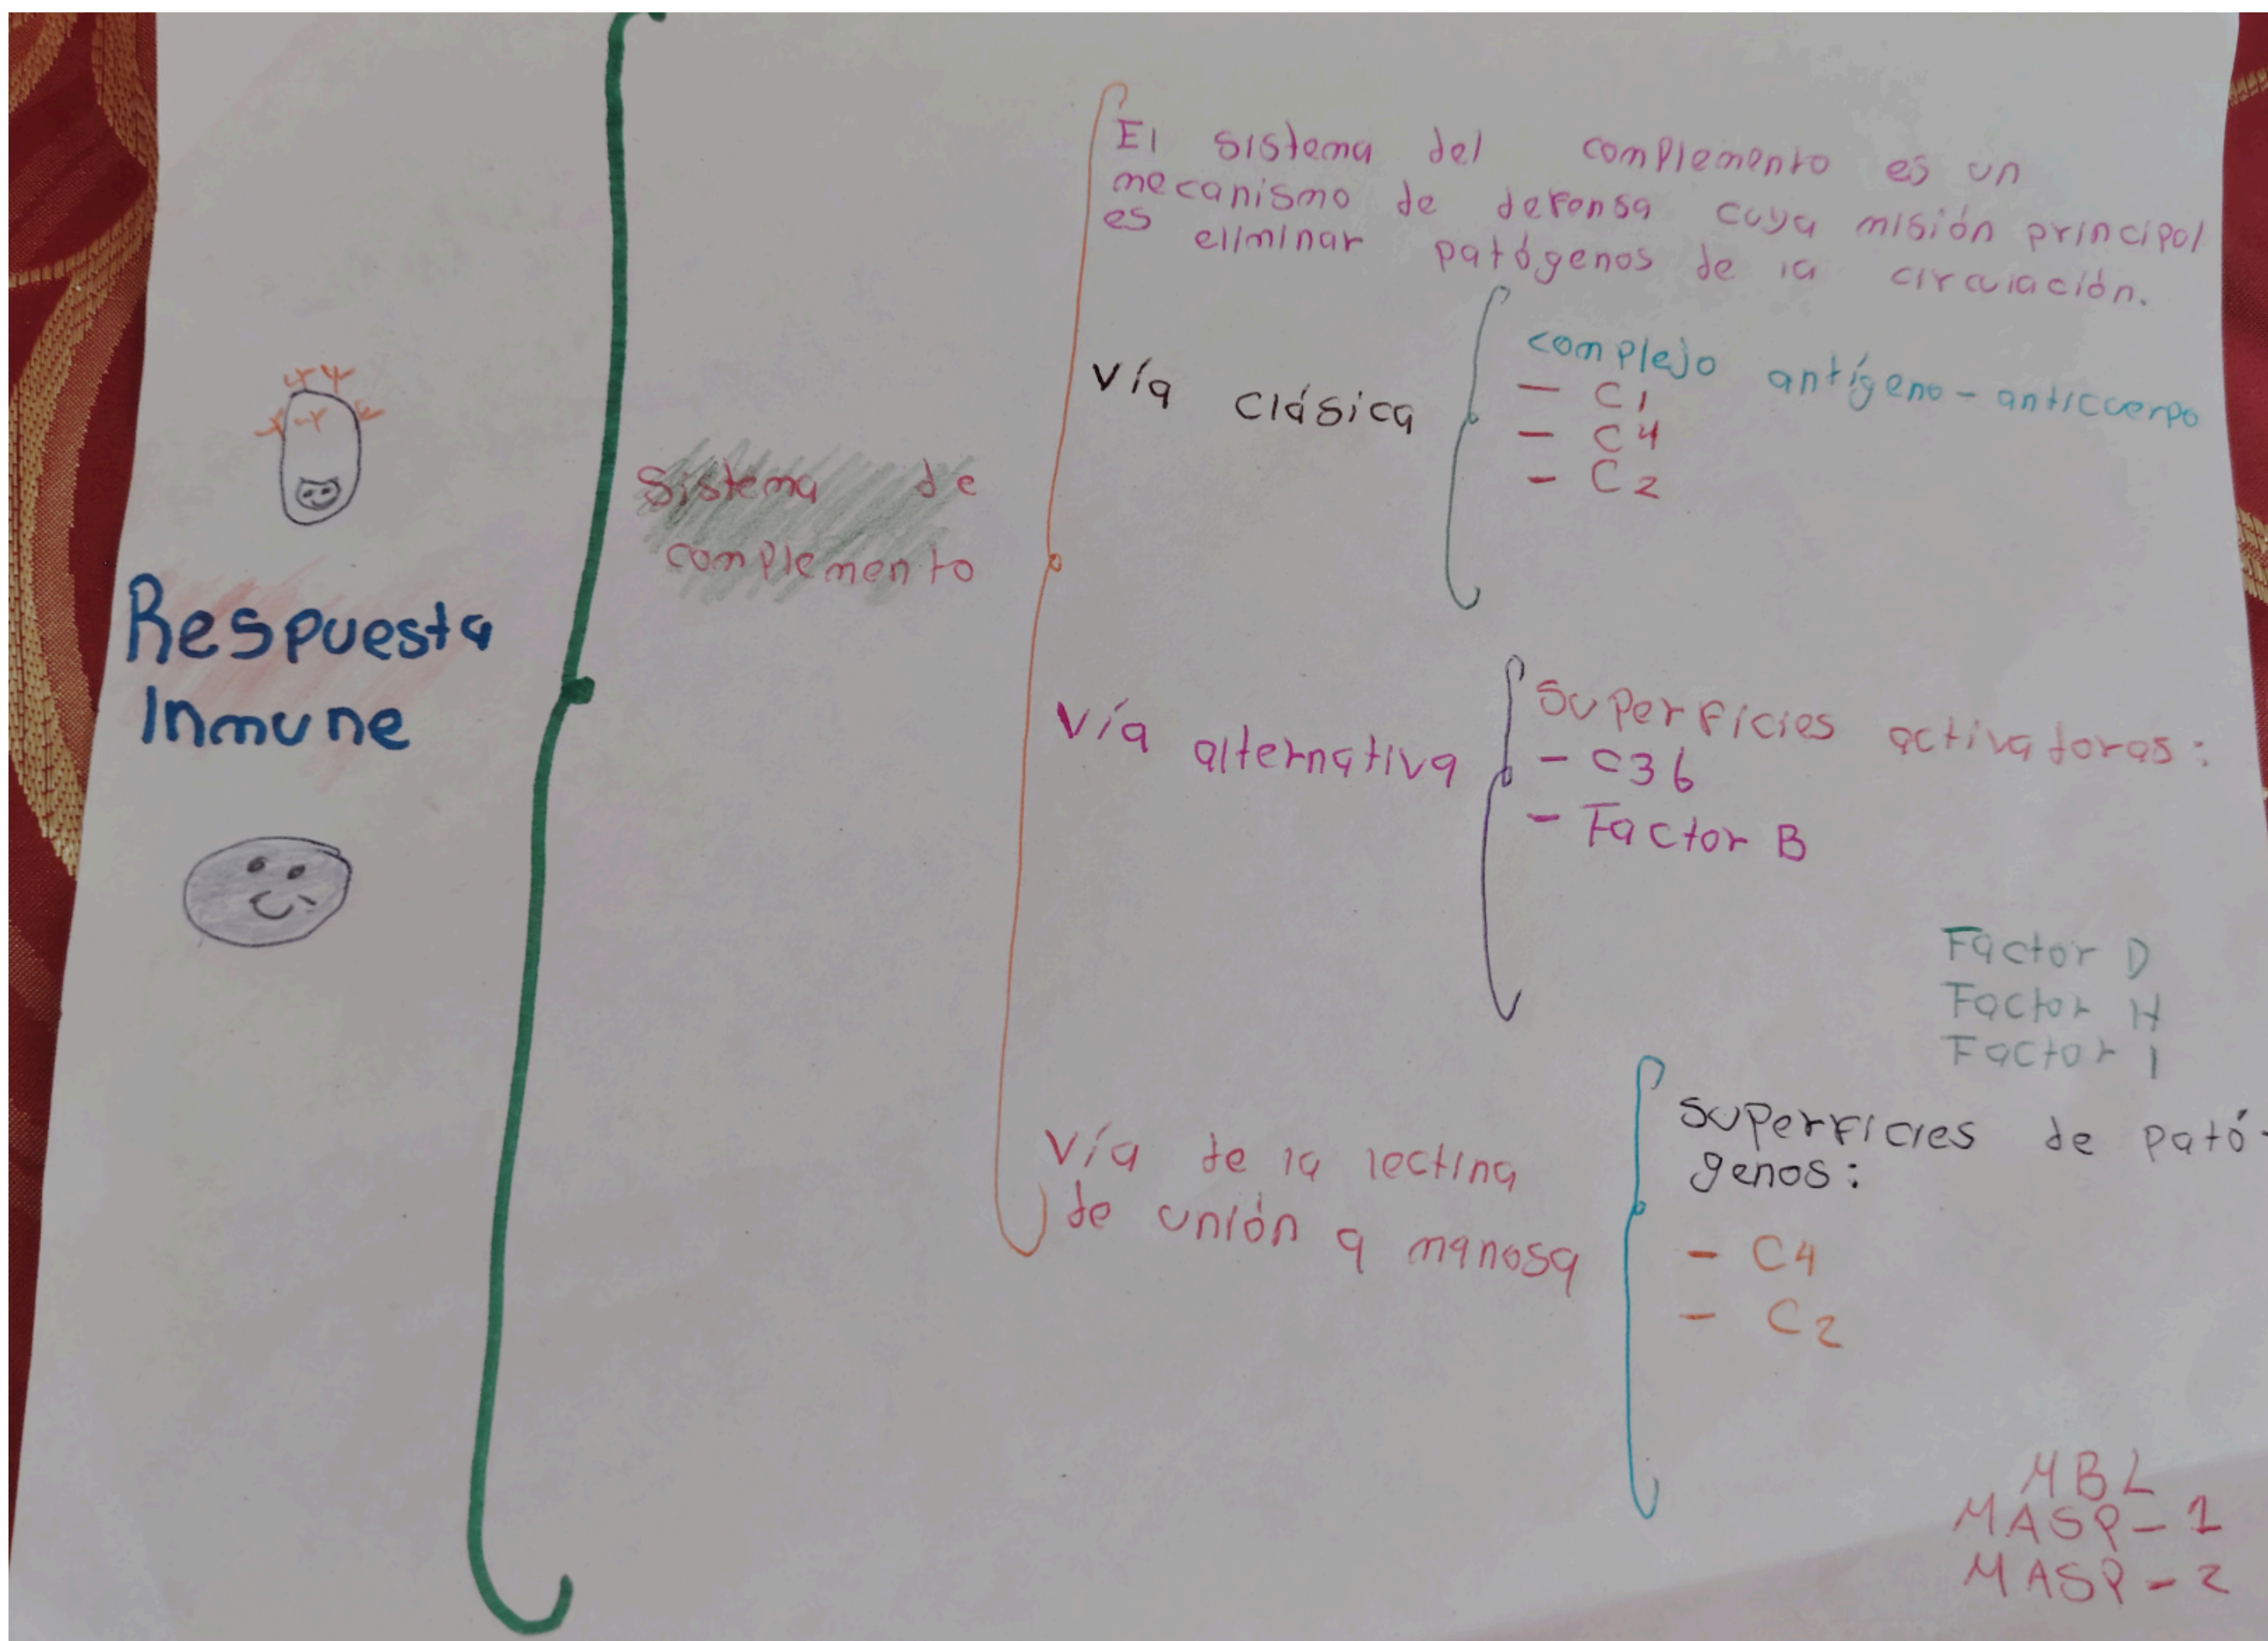 Respuesta
Inmune
Sistema de
complemento
El sistema del complemento es un
mecanismo de defensa cuya misión principal
es eliminar patógenos de la circulación.
Vía clásica
complejo antígeno-anticuerpo
- C1
- C4
- C2
Vía alternativa
Superficies activadoras:
- C3b
- Factor B
Factor D
Factor H
Factor I
Vía de la lectina
de unión a manosa
superficies de pató-
genos:
- C4
- C2
MBL
MASP-1
MASP-2